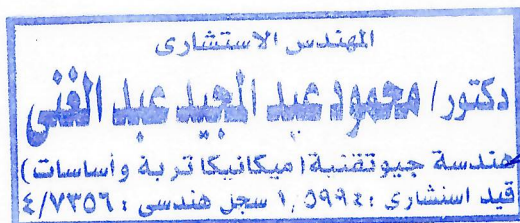 المهندس الاستشارى
دكتور/ محمود عبد المجيد عبد الغنى
هندسة جيوتقنية (ميكانيكا تربة وأساسات)
قيد استشارى : ١,٥٩٩٤ سجل هندسى : ٤/٧٣٥٦